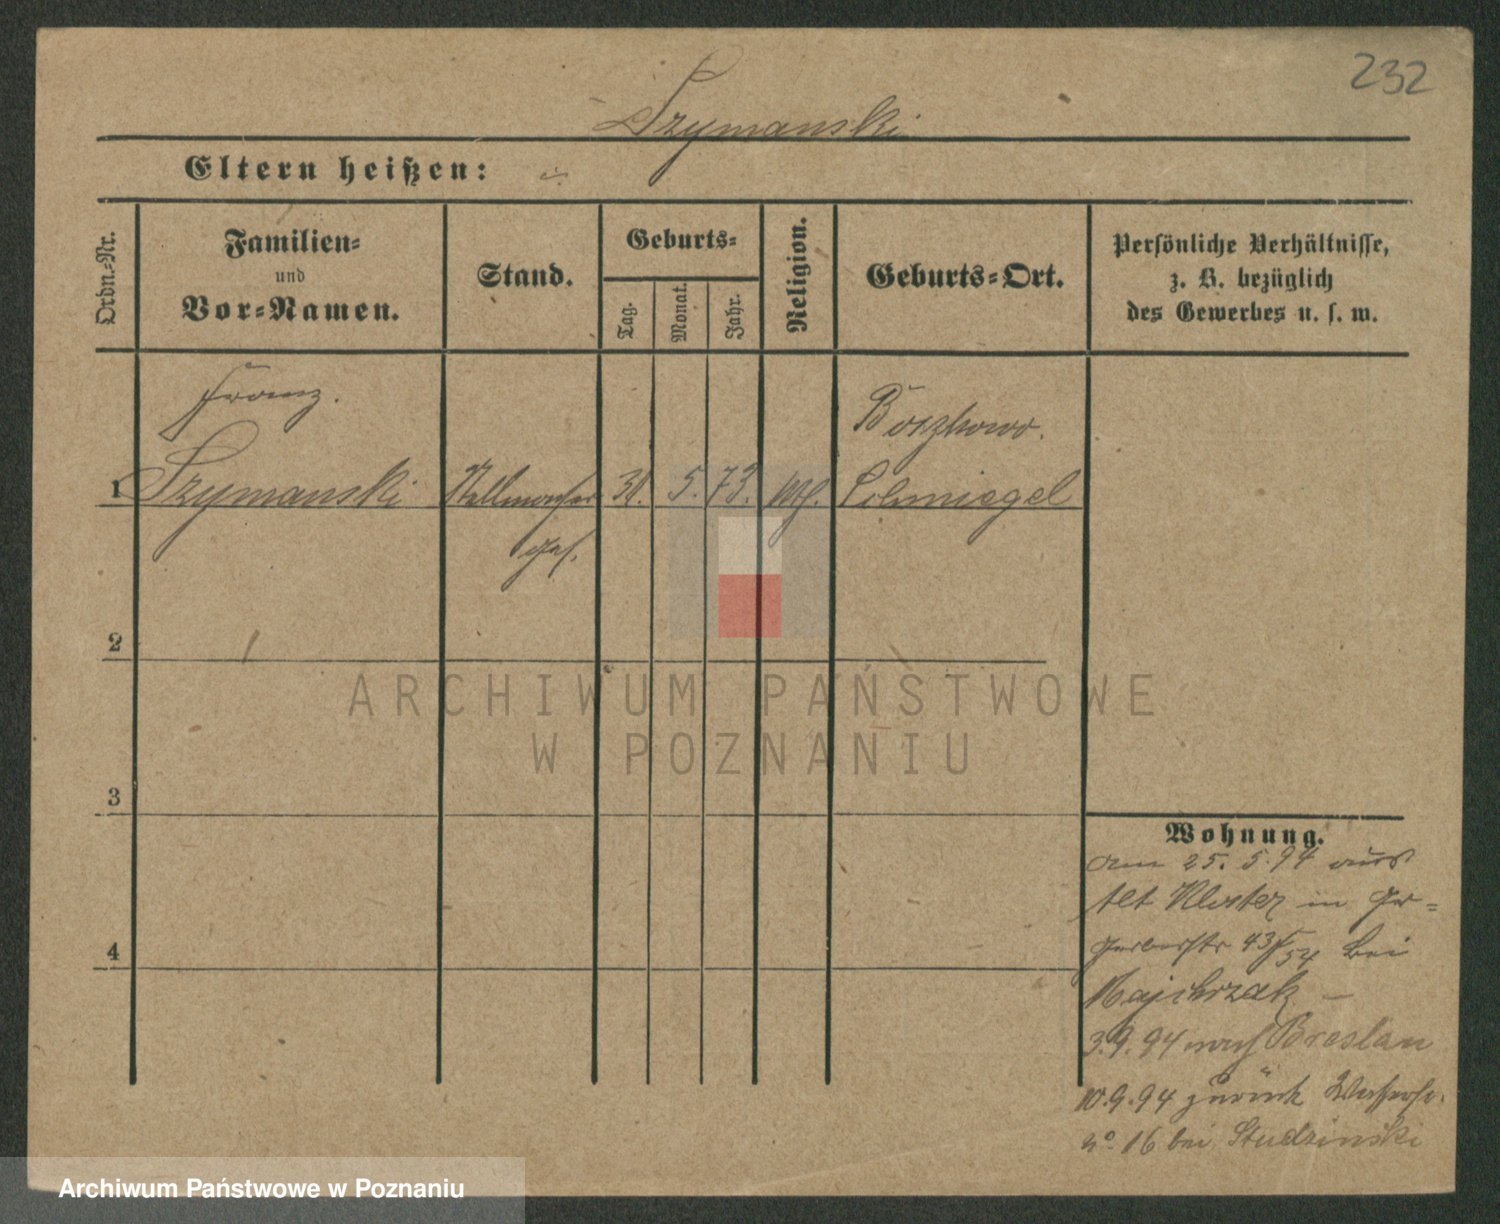 232
Szymanski
Eltern heißen:
Ordn.-Nr.
Familien-
und
Vor-Namen.
Stand.
Geburts-
Tag.
Monat.
Jahr.
Religion.
Geburts-Ort.
Persönliche Verhältnisse,
z. B. bezüglich
des Gewerbes u. s. w.
Franz.
Boszkowo.
1 Szymanski Stellmacher 31. 5. 73. kth. Schmiegel
Ges.
2
3
4
Wohnung.
am 25. 5. 94 aus
Alt Kloster in Gr-
Gerberstr bei
Majchrzak –
3.9.94 nach Breslau
10.9.94 zurück Wasserstr.
no 16 bei Studzinski
ARCHIWUM PAŃSTWOWE
W POZNANIU
Archiwum Państwowe w Poznaniu